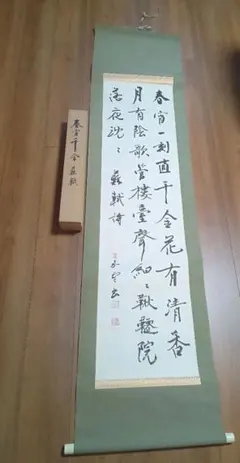 春宵一刻直千金花有清香
月有陰歌管樓臺聲細々鞦韆院
落夜沈々 蘇軾詩
書
春宵千金 蘇軾